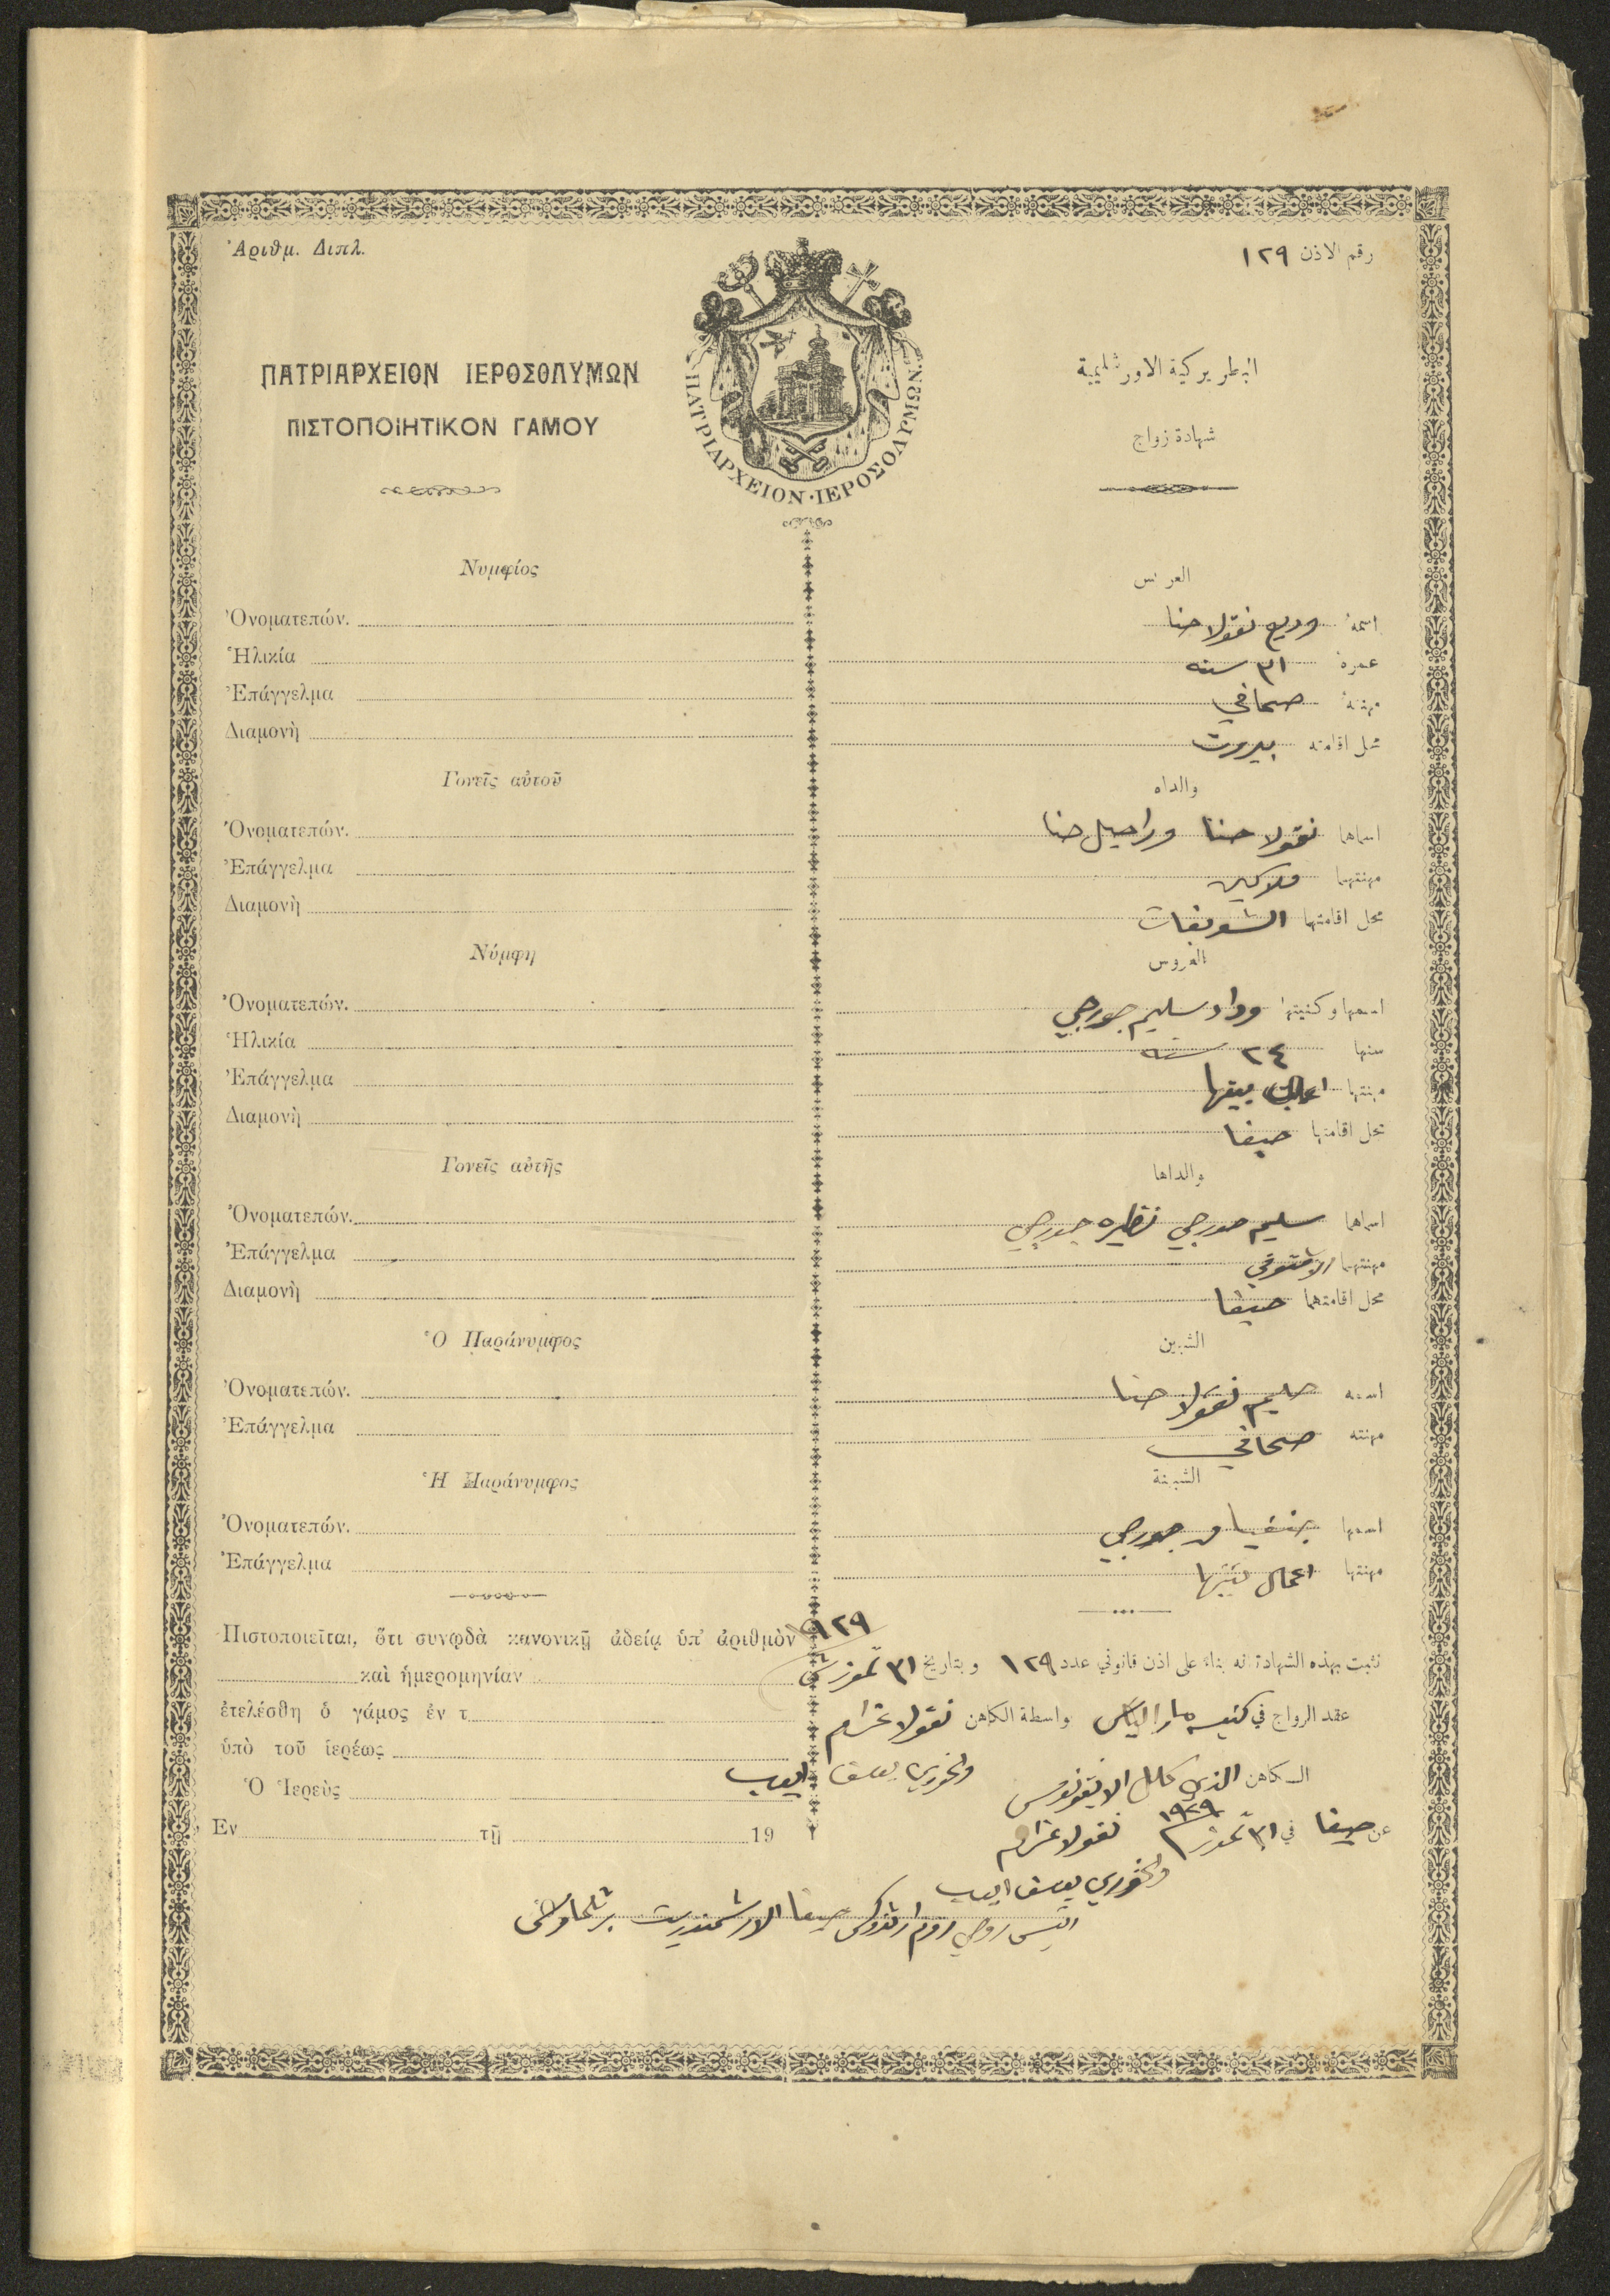 Ἀριθμ. Διπλ.
رقم الاذن ١٢٩
ΠΑΤΡΙΑΡΧΕΙΟΝ ΙΕΡΟΣΟΛΥΜΩΝ
ΠΙΣΤΟΠΟΙΗΤΙΚΟΝ ΓΑΜΟΥ
ΠΑΤΡΙΑΡΧΕΙΟΝ·ΙΕΡΟΣΟΛΥΜΩΝ
البطريركية الاورشليمية
شهادة زواج
Νυμφίος
Ὀνοματεπών.
Ἡλικία
Ἐπάγγελμα
Διαμονὴ
Γονεῖς αὐτοῦ
Ὀνοματεπών.
Ἐπάγγελμα
Διαμονὴ
Νύμφη
Ὀνοματεπών.
Ἡλικία
Ἐπάγγελμα
Διαμονὴ
Γονεῖς αὐτῆς
Ὀνοματεπών.
Ἐπάγγελμα
Διαμονὴ
Ὁ Παράνυμφος
Ὀνοματεπών.
Ἐπάγγελμα
Ἡ Παράνυμφος
Ὀνοματεπών.
Ἐπάγγελμα
Πιστοποιεῖται, ὅτι συνῳδὰ κανονικῇ ἀδείᾳ ὑπ' ἀριθμὸν ١٢٩
καὶ ἡμερομηνίαν
ἐτελέσθη ὁ γάμος ἐν τ
ὑπὸ τοῦ ἱερέως
Ὁ Ἱερεὺς
Ἐν τῇ 19
العريس
اسمه وديع نقولا حنا
عمره ٣١ سنه
مهنته صحافي
محل اقامته بيروت
والداه
اسماهما نقولا حنا وراحيل حنا
مهنتهما ملاكين
محل اقامتهما الشويفات
العروس
اسمها وكنيتها وداد سليم جورجي
سنها ٢٤ سنه
مهنتها اعمال بيتها
محل اقامتها حيفا
والداها
اسماهما سليم جورجي نظيره جورجي
مهنتهما
محل اقامتهما حيفا
الشبين
اسمه حليم نقولا حنا
مهنته صحافي
الشبينة
اسمها جورجي
مهنتها اعمال بيتها
نثبت بهذه الشهادة انه بناء على اذن قانوني عدد ١٢٩ وبتاريخ ٣١ تموز
عقد الزواج في كنيسه مار الياس بواسطة الكاهن نقولا
والخوري يوسف اديب
الكاهن الذي كلل الايقونومس
عن حيفا في ٣١ تموز ١٩٢٩ نقولا
والخوري يوسف اديب
الرئيس روحي روم ارثوذكس حيفا الارشمندريت